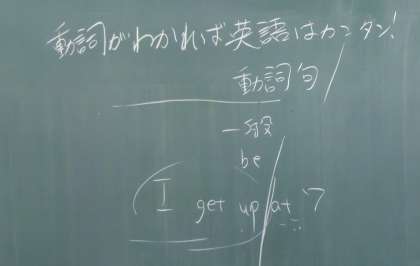 動詞がわかれば英語はカンタン!
動詞句
一般
be
I get up at 7